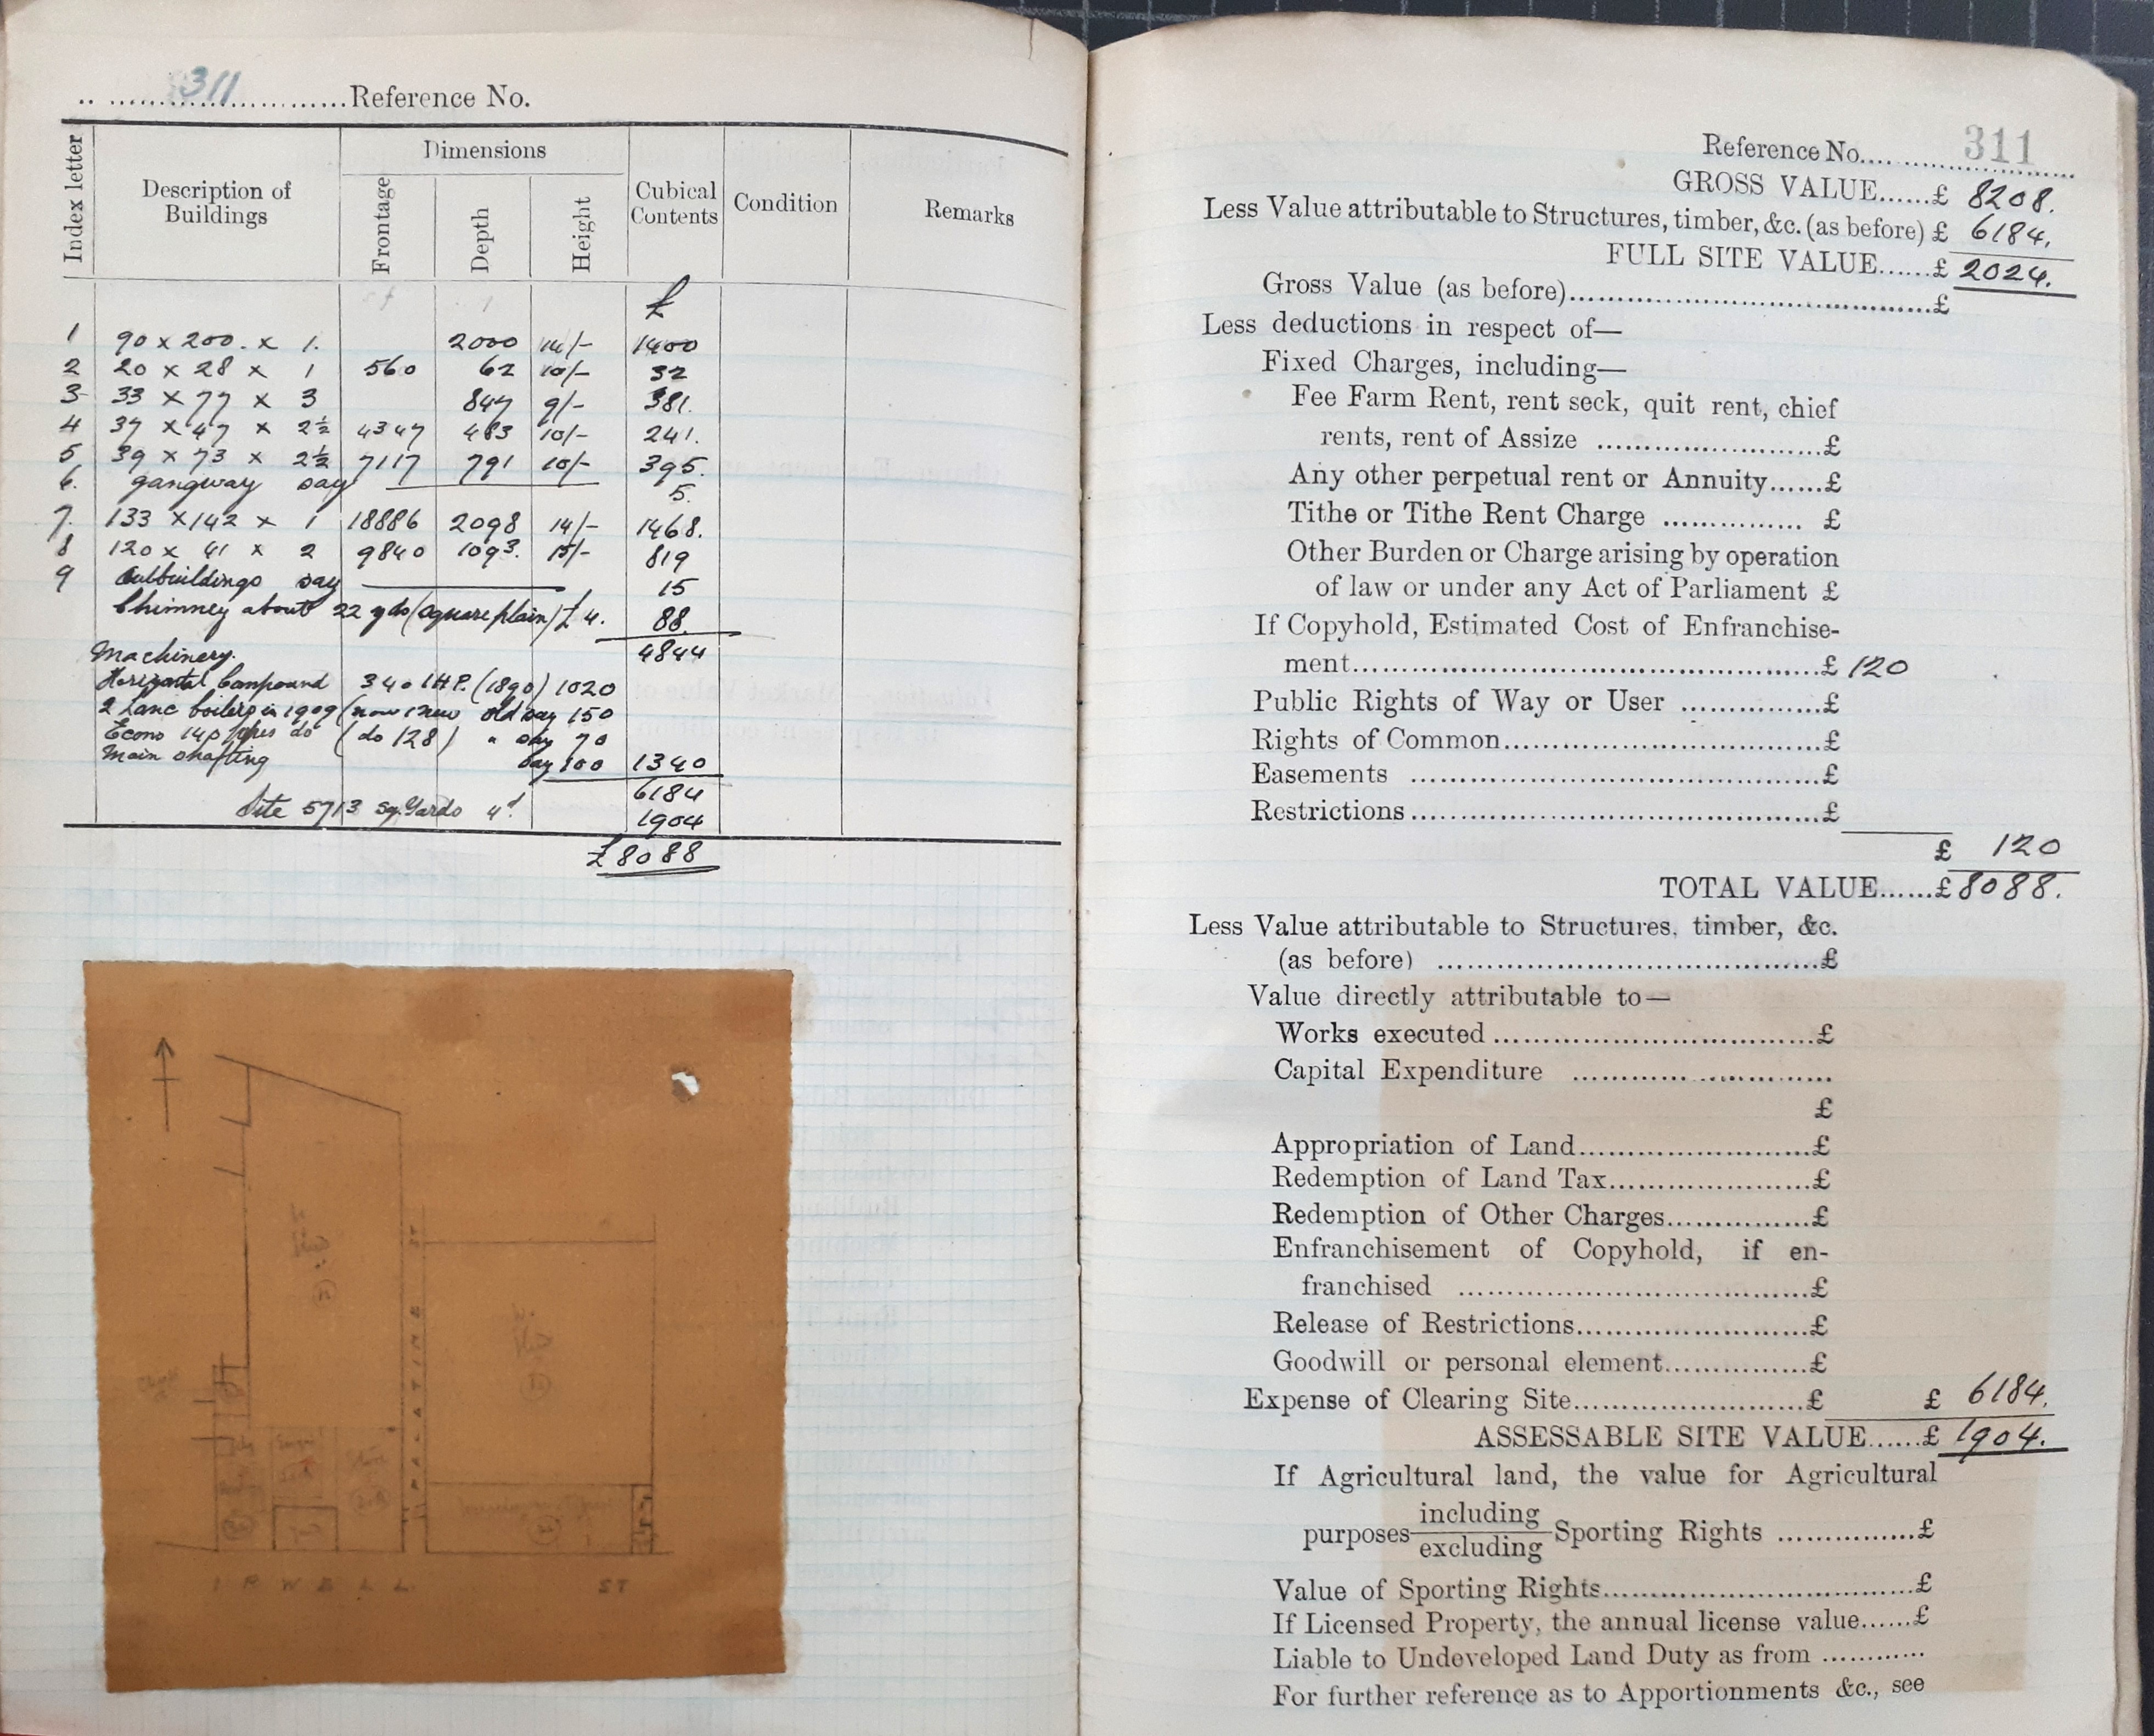 311 Reference No.
Index letter
Description of Buildings
Dimensions
Frontage
Depth
Height
Cubical Contents
Condition
Remarks
£
1 90 x 200. x 1. 2000 14/- 1400
2 20 x 28 x 1 560 62 10/- 32
3 33 x 77 x 3 847 9/- 381.
4 37 x 47 x 2½ 4347 483 10/- 241.
5 39 x 73 x 2½ 7117 791 10/- 395.
6. gangway say 5.
7. 133 x 142 x 1 18886 2098 14/- 1468.
8 120 x 41 x 2 9840 1093. 15/- 819
9 Outbuildings say 15
Chimney about 22 yds (square plain) £4. 88.
4844
Machinery.
Horizontal Compound 340 IHP. (1890) 1020
2 Lanc boilers in 1909 (now 1 new old say 150
Econo 140 pipes do (do 128) " say 70
Main shafting say 100 1340
6184
Site 5713 Sq. Yards 4d. 1904
£8088
PALATINE ST
IRWELL ST
Reference No. 311
GROSS VALUE......£ 8208.
Less Value attributable to Structures, timber, &c. (as before) £ 6184.
FULL SITE VALUE......£ 2024.
Gross Value (as before)........£
Less deductions in respect of—
Fixed Charges, including—
Fee Farm Rent, rent seck, quit rent, chief
rents, rent of Assize ........£
Any other perpetual rent or Annuity......£
Tithe or Tithe Rent Charge ........ £
Other Burden or Charge arising by operation
of law or under any Act of Parliament £
If Copyhold, Estimated Cost of Enfranchise-
ment........£ 120
Public Rights of Way or User ........£
Rights of Common........£
Easements ........£
Restrictions........£
£ 120
TOTAL VALUE......£ 8088.
Less Value attributable to Structures, timber, &c.
(as before) ........£
Value directly attributable to—
Works executed ........£
Capital Expenditure ........
£
Appropriation of Land........£
Redemption of Land Tax........£
Redemption of Other Charges........£
Enfranchisement of Copyhold, if en-
franchised ........£
Release of Restrictions........£
Goodwill or personal element........£
Expense of Clearing Site........£ £ 6184.
ASSESSABLE SITE VALUE......£ 1904.
If Agricultural land, the value for Agricultural
purposes including
excluding Sporting Rights ........£
Value of Sporting Rights........£
If Licensed Property, the annual license value......£
Liable to Undeveloped Land Duty as from ............
For further reference as to Apportionments &c., see